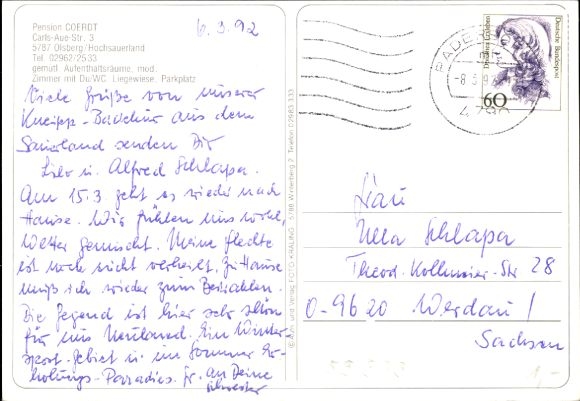 Pension COERDT
Carls-Aue-Str. 3
5787 Olsberg/Hochsauerland
Tel. 02962/2533
gemütl. Aufenthaltsräume, mod.
Zimmer mit Du/WC. Liegewiese, Parkplatz
6.3.92
Viele Grüße von unserer
Kneipp-Badekur aus dem
Sauerland senden Dir
Lilo u. Alfred Schlapa.
Am 15.3. geht es wieder nach
Hause. Wir fühlen uns wohl,
Wetter gemischt. Meine Flechte
ist noch nicht verheilt. Zu Hause
muß ich wieder zum Bestrahlen.
Die Gegend ist hier sehr schön
für uns Neuland. Ein Winter
sport-Gebiet u. im Sommer Er-
holungs-Paradies. Gr. an Deine
Schwester
© Foto KRÄLING 5788 Winterberg 2, Telefon
Deutsche Bundespost
60
PADERBORN
-8.3.92
4790
Frau
Schlapa
Theod.-Kollmeier-Str 28
O-9620 Werdau!
Sachsen